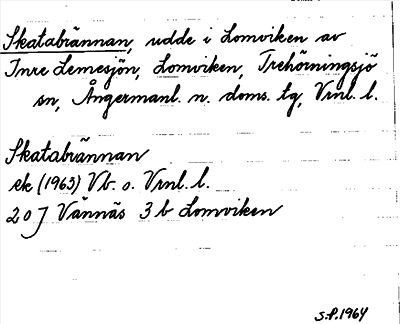 Skatabrännan, udde i Lomviken av
Inre Lemesjön, Lomviken, Trehörningsjö
sn, Ångermanl. n. doms. tg, Vrnl. l.
Skatabrännan
ek (1963) Vb. o. Vrnl. l.
20 J Vännäs 3 b Lomviken
S.P. 1964